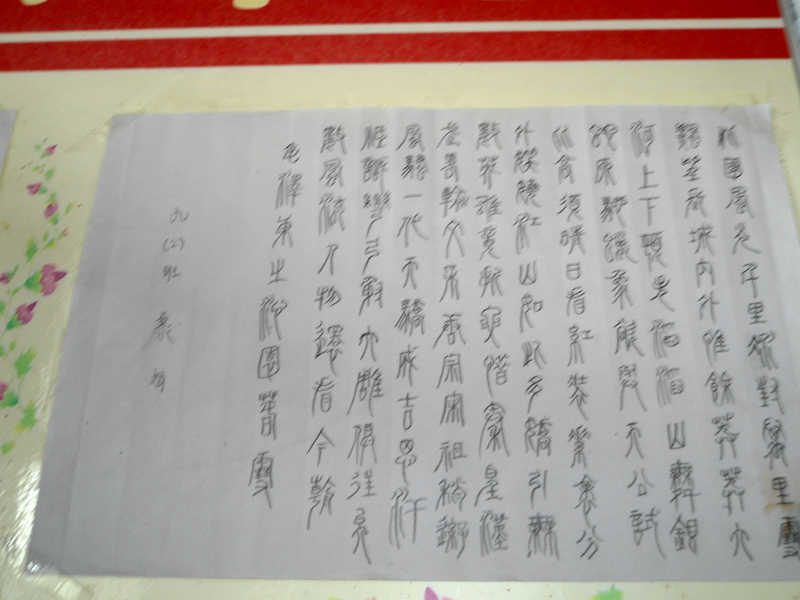 北国风光千里冰封万里雪
飘望长城内外惟余莽莽大
河上下顿失滔滔山舞银
蛇原驰蜡象欲与天公试
比高须晴日看红装素裹分
外妖娆江山如此多娇引无
数英雄竞折腰惜秦皇汉
武略输文采唐宗宋祖稍逊
风骚一代天骄成吉思汗
只识弯弓射大雕俱往矣
数风流人物还看今朝
毛泽东之沁园春雪
九(2)班